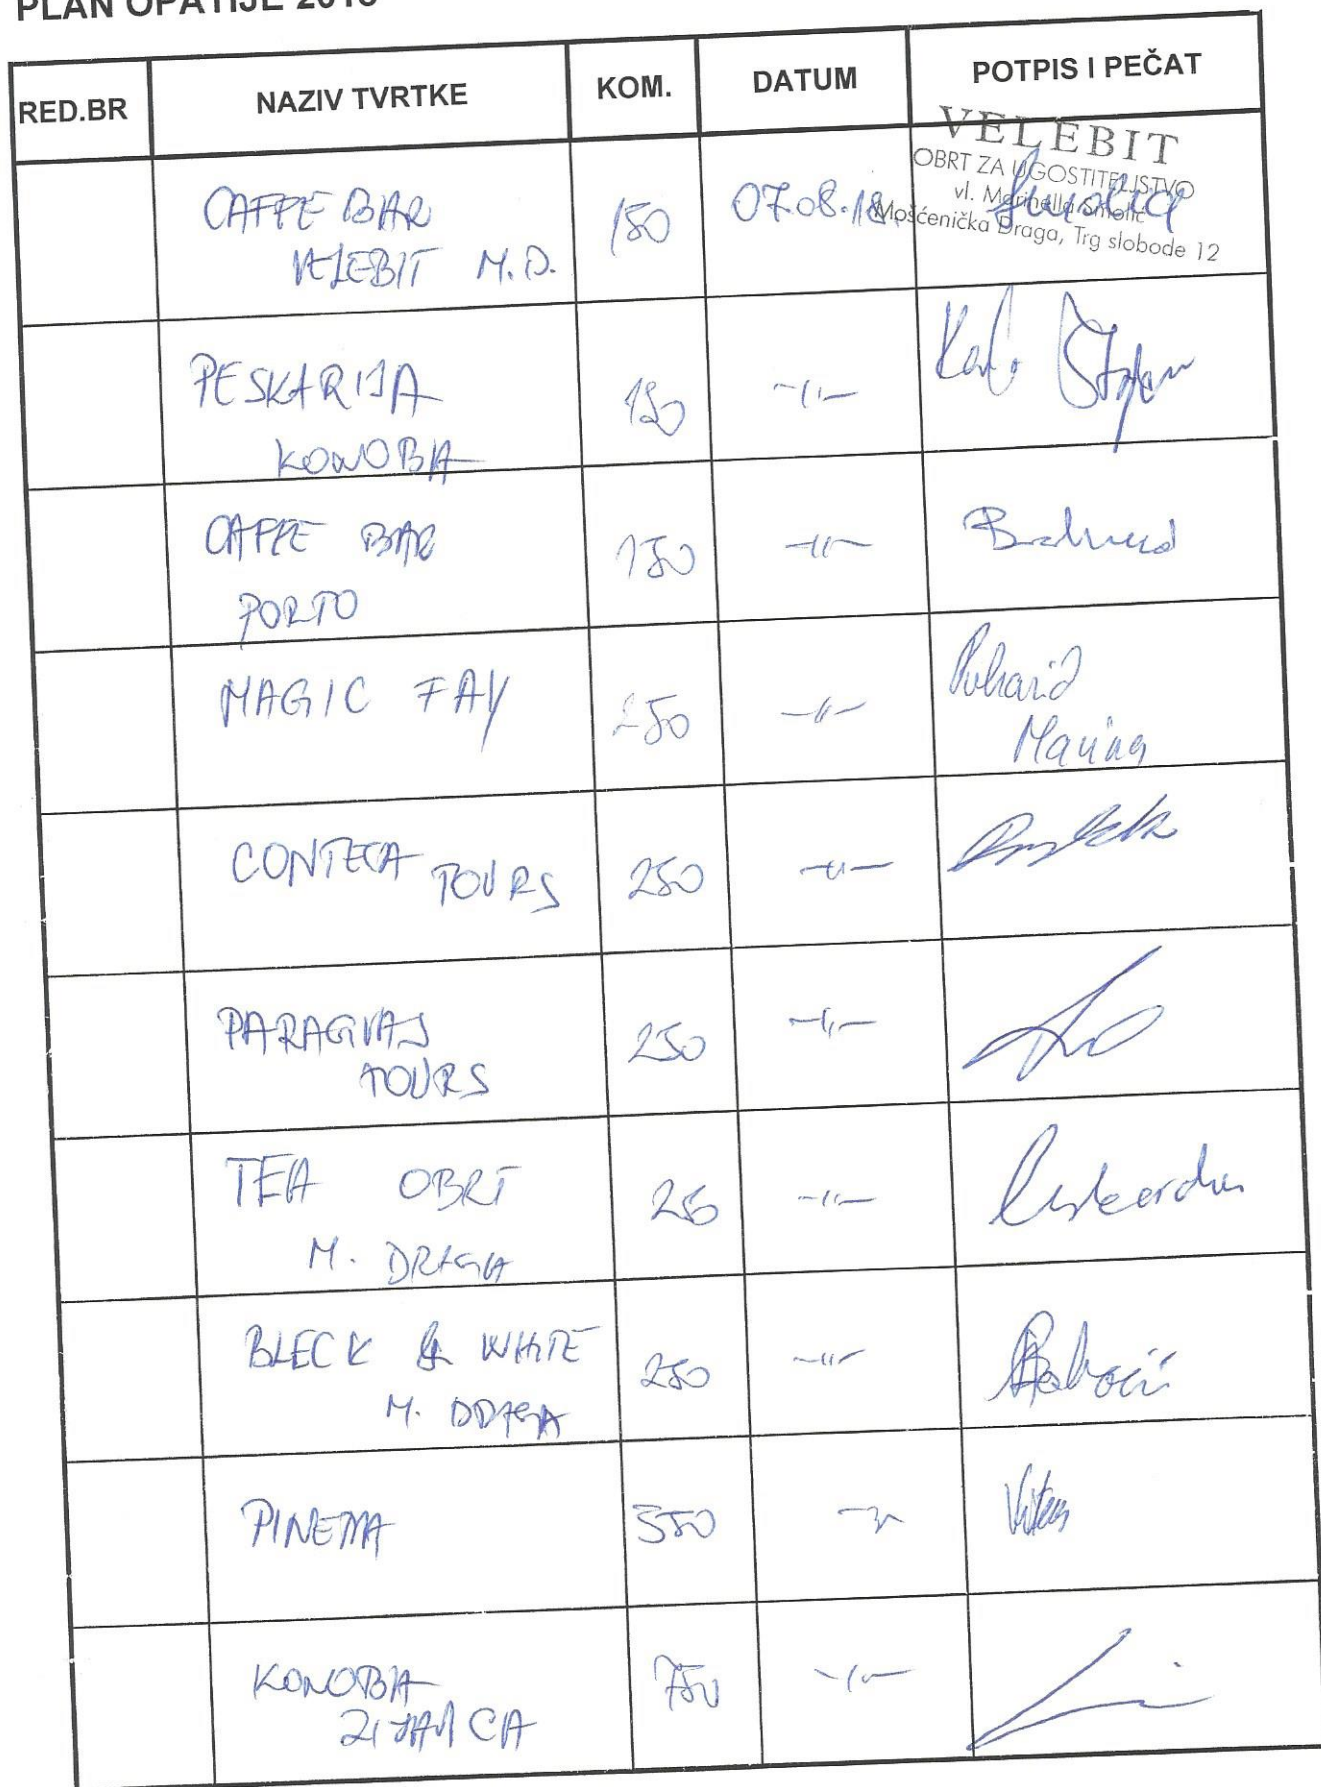 PLAN OPATIJE 2018
RED.BR NAZIV TVRTKE KOM. DATUM POTPIS I PEČAT
CAFFE BAR
VELEBIT M.D.
150 07.08.18.
VELEBIT
OBRT ZA UGOSTITELJSTVO
vl. Marinella Smolić
Mošćenička Draga, Trg slobode 12
PESKARIJA
KONOBA
150 -11-
CAFFE BAR
PORTO
150 -11-
MAGIC FAY 250 -11-
Marina
CONTECA TOURS 250 -11-
PARAGVAJ
TOURS
250 -11-
TEA OBRT
M. DRAGA
250 -11-
BLECK & WHITE
M. DRAGA
250 -11-
PINEMA 350 -11-
KONOBA
ZIJAVICA
750 -11-